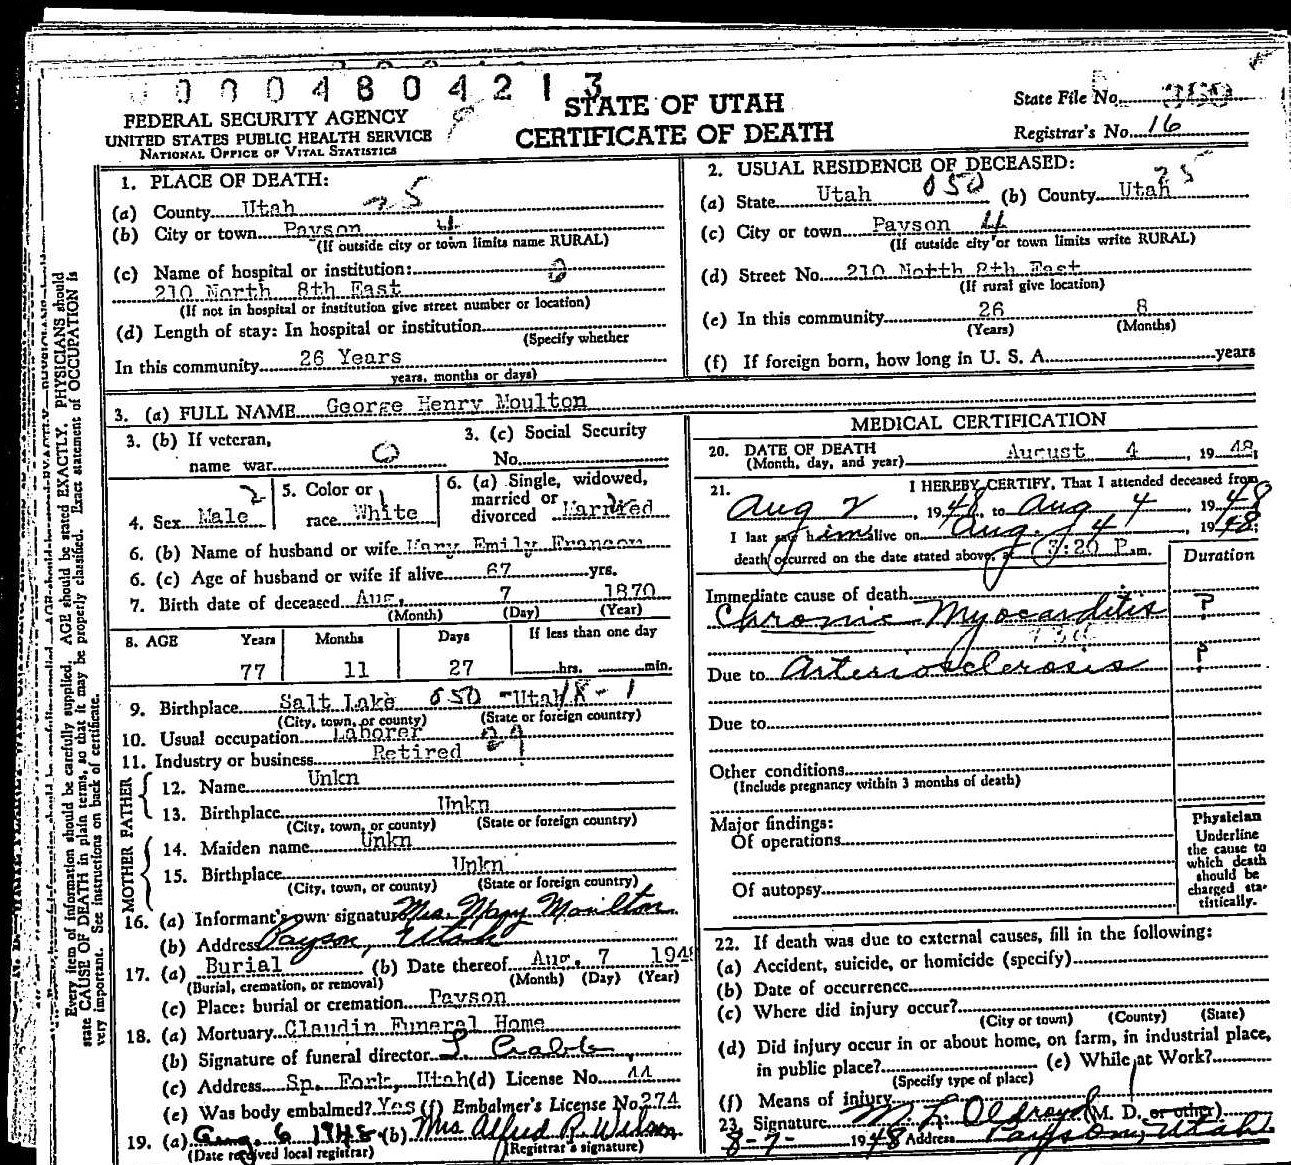 0 0 0 0 4 8 0 4 2 1 3
FEDERAL SECURITY AGENCY
UNITED STATES PUBLIC HEALTH SERVICE
NATIONAL OFFICE OF VITAL STATISTICS
STATE OF UTAH
CERTIFICATE OF DEATH
State File No.
Registrar's No. 16
1. PLACE OF DEATH: 25
(a) County Utah
(b) City or town Payson 4
(If outside city or town limits name RURAL)
(c) Name of hospital or institution: 0
210 North 8th East
(If not in hospital or institution give street number or location)
(d) Length of stay: In hospital or institution
(Specify whether
In this community 26 Years
years, months or days)
2. USUAL RESIDENCE OF DECEASED: 25
(a) State Utah 050 (b) County Utah
(c) City or town Payson 4
(If outside city or town limits write RURAL)
(d) Street No. 210 Notth 8th East
(If rural give location)
(e) In this community 26 8
(Years) (Months)
(f) If foreign born, how long in U. S. A. years
3. (a) FULL NAME George Henry Moulton
3. (b) If veteran, name war 0
3. (c) Social Security No.
4. Sex Male 2
5. Color or race White
6. (a) Single, widowed, married or divorced Married
6. (b) Name of husband or wife Mary Emily Francom
6. (c) Age of husband or wife if alive 67 yrs.
7. Birth date of deceased Aug. 7 1870
(Month) (Day) (Year)
8. AGE Years Months Days If less than one day
77 11 27 hrs. min.
9. Birthplace Salt Lake 050 Utah 18-1
(City, town, or county) (State or foreign country)
10. Usual occupation Laborer
11. Industry or business Retired
FATHER
12. Name Unkn
13. Birthplace Unkn
(City, town, or county) (State or foreign country)
MOTHER
14. Maiden name Unkn
15. Birthplace Unkn
(City, town, or county) (State or foreign country)
16. (a) Informant's own signature Mrs. Mary Moulton
(b) Address Payson, Utah
17. (a) Burial (b) Date thereof Aug. 7 194
(Burial, cremation, or removal) (Month) (Day) (Year)
(c) Place: burial or cremation Payson
18. (a) Mortuary Claudin Funeral Home
(b) Signature of funeral director
(c) Address Sp. Fork, Utah (d) License No. 44
(e) Was body embalmed? Yes (f) Embalmer's License No 274
19. (a) Aug. 6 1948 (b) Mrs Alfred R. Wilson
(Date received local registrar) (Registrar's signature)
MEDICAL CERTIFICATION
20. DATE OF DEATH August 4, 1948
(Month, day, and year)
21. I HEREBY CERTIFY, That I attended deceased from
Aug 2, 1948, to Aug 4, 1948
I last saw him alive on Aug. 4 1948:
death occurred on the date stated above, at :20 P.m.
Duration
Immediate cause of death
Chronic Myocarditis ?
Due to Arteriosclerosis ?
Due to
Other conditions
(Include pregnancy within 3 months of death)
Major findings:
Of operations
Of autopsy
Physician
Underline
the cause to
which death
should be
charged sta-
tistically.
22. If death was due to external causes, fill in the following:
(a) Accident, suicide, or homicide (specify)
(b) Date of occurrence
(c) Where did injury occur?
(City or town) (County) (State)
(d) Did injury occur in or about home, on farm, in industrial place,
in public place? (e) While at Work?
(Specify type of place)
(f) Means of injury
23. Signature M L Oldroyd (M. D. or other)
8-7- 1948 Address Payson, Utah
Every item of information should be carefully supplied. AGE should be stated EXACTLY. PHYSICIANS should
state CAUSE OF DEATH in plain terms, so that it may be properly classified. Exact statement of OCCUPATION is
very important. See instructions on back of certificate.